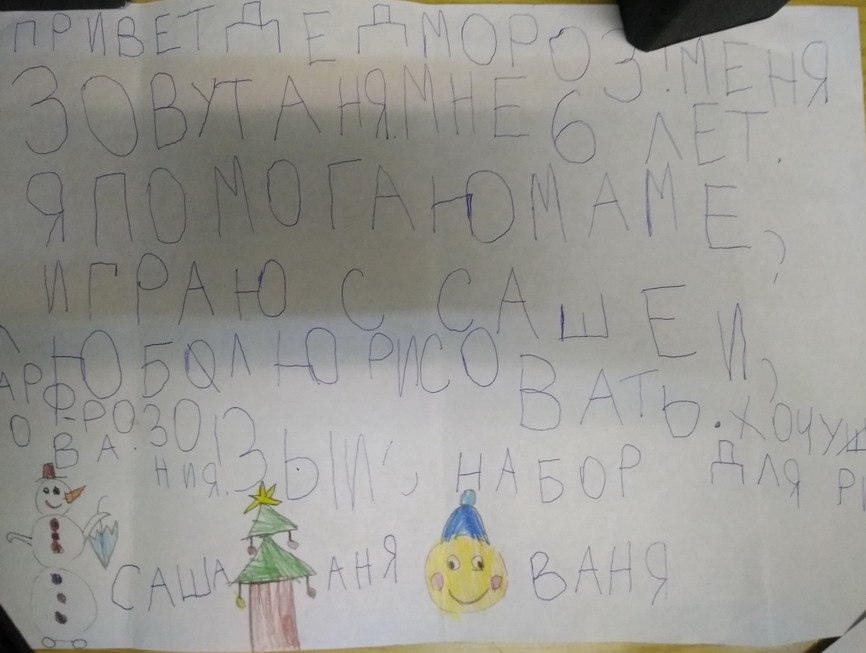 ПРИВЕТ ДЕД МОРОЗ! МЕНЯ
ЗОВУТ АНЯ. МНЕ 6 ЛЕТ.
Я ПОМОГАЮ МАМЕ,
ИГРАЮ С САШЕЙ,
ЛЮБЛЮ РИСОВАТЬ. ХОЧУ Ш
НАБОР ДЛЯ РИ
ВА
НИЯ.
САША АНЯ ВАНЯ